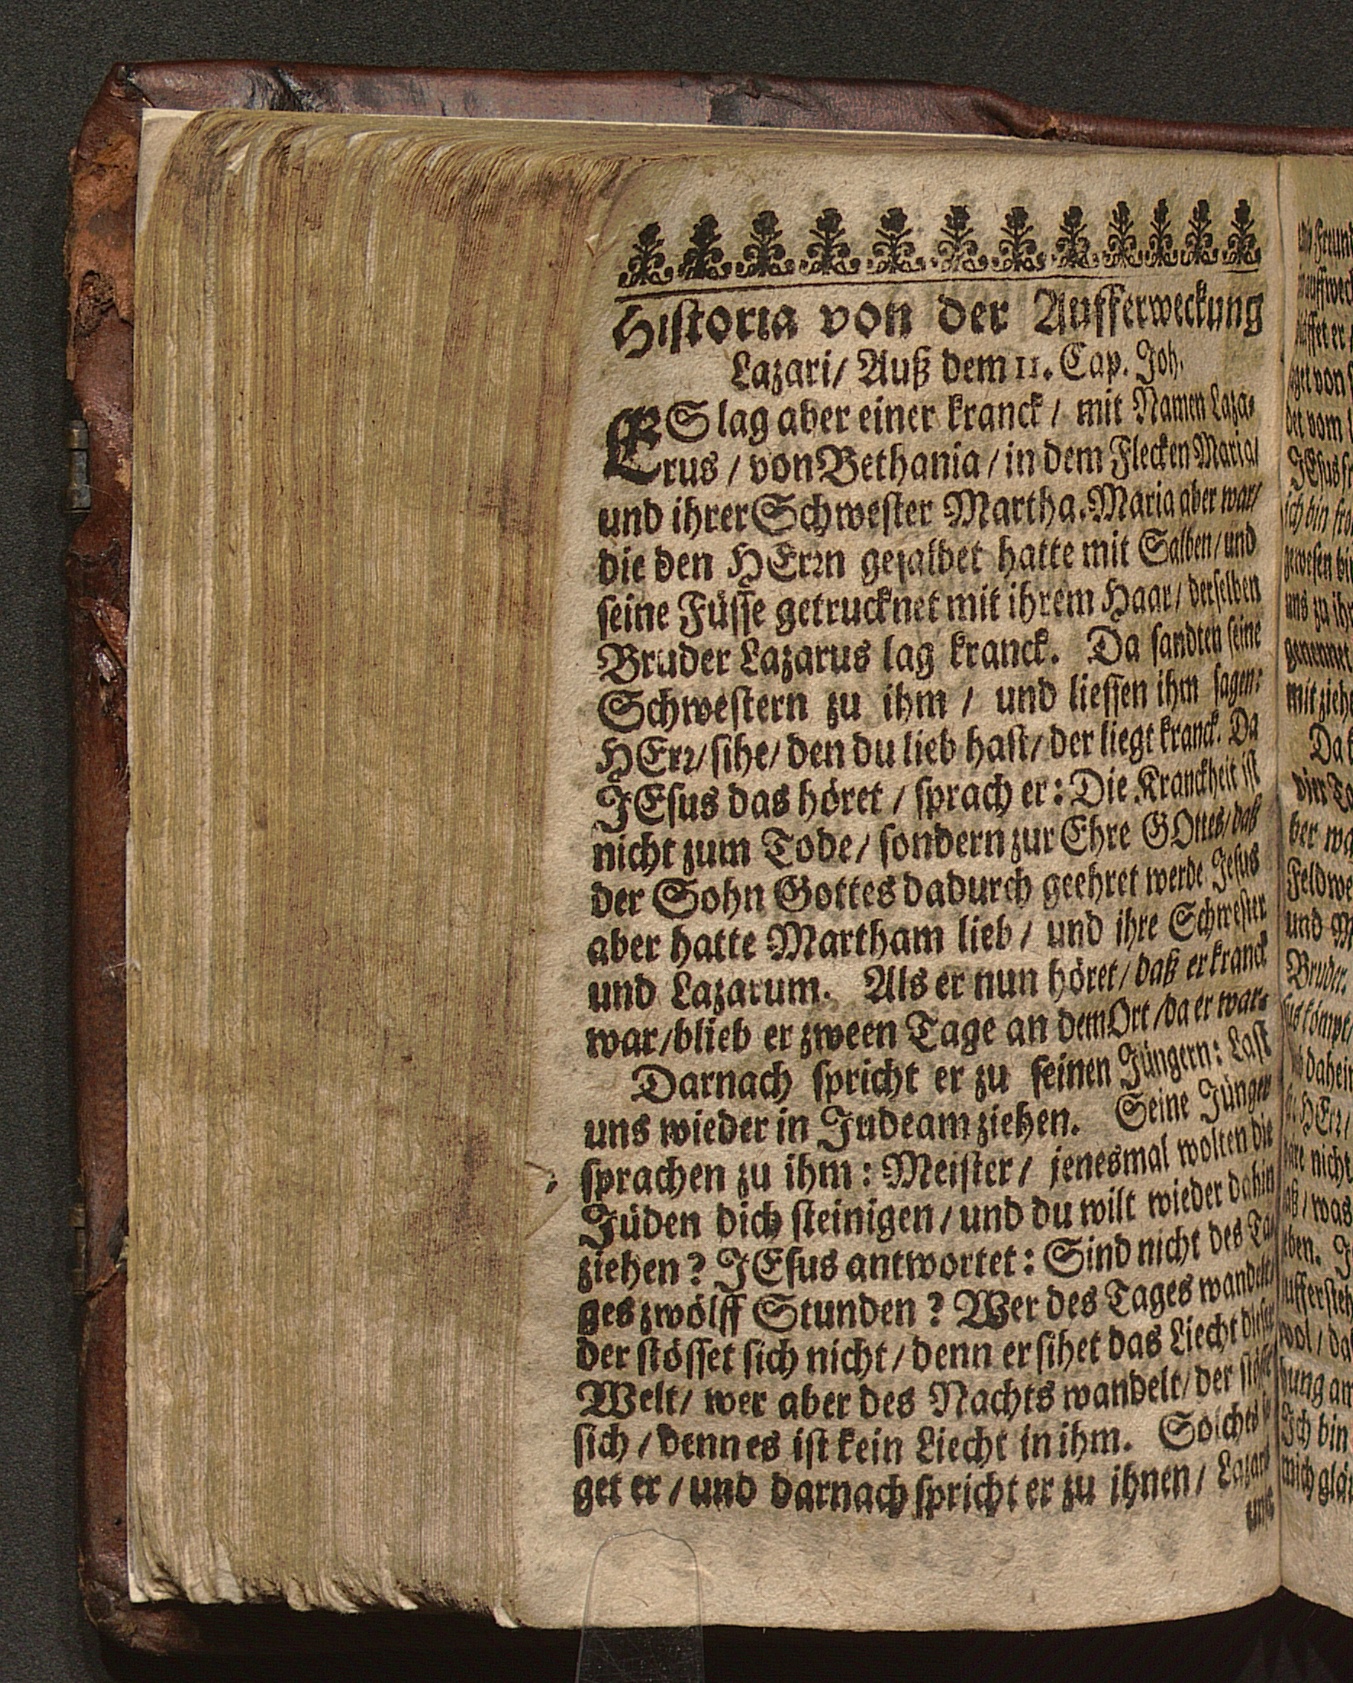 Historia von der Aufferweckung
Lazari/ Auß dem 11. Cap. Joh.
ES lag aber einer kranck / mit Namen Laza-
rus / von Bethania / in dem Flecken Maria/
und ihrer Schwester Martha. Maria aber war/
die den HErrn gesalbet hatte mit Salben/und
seine Füsse getrucknet mit ihrem Haar/ derselben
Bruder Lazarus lag kranck. Da sandten seine
Schwestern zu ihm / und liessen ihm sagen:
HErr/ sihe/ den du lieb hast/ der liegt kranck. Da
JEsus das höret / sprach er: Die Kranckheit ist
nicht zum Tode/ sondern zur Ehre GOttes/daß
der Sohn Gottes dadurch geehret werde. Jesus
aber hatte Martham lieb / und ihre Schwester
und Lazarum. Als er nun höret/ daß er kranck
war/blieb er zween Tage an dem Ort /da er war.
Darnach spricht er zu seinen Jüngern: Last
uns wieder in Judeam ziehen. Seine Jünger
sprachen zu ihm: Meister/ jenesmal wolten die
Jüden dich steinigen / und du wilt wieder dahin
ziehen? JEsus antwortet: Sind nicht des Ta-
ges zwölff Stunden? Wer des Tages wandelt/
der stösset sich nicht / denn er sihet das Liecht dieser
Welt/ wer aber des Nachts wandelt/ der stösset
sich / denn es ist kein Liecht in ihm. Solches sa-
get er / und darnach spricht er zu ihnen/ Lazarus
uns
ich bin fro
gewesen bin
uns zu ihm
mit ziehe
Da k
ber wa
Feldwe
und M
Bruder.
daheim
HErr/
nicht
was
Ich bin
mich glau